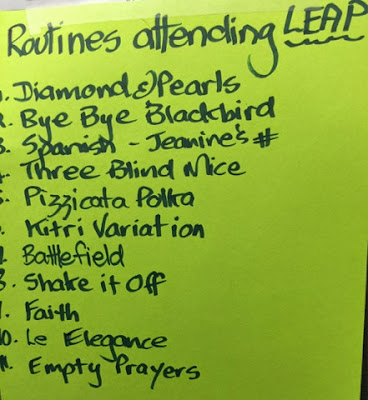 Routines attending LEAP
1. Diamond & Pearls
2. Bye Bye Blackbird
3. Spanish - Jeanine's #
4. Three Blind Mice
5. Pizzicata Polka
6. Kitri Variation
7. Battlefield
8. Shake it Off
9. Faith
10. Le Elegance
11. Empty Prayers